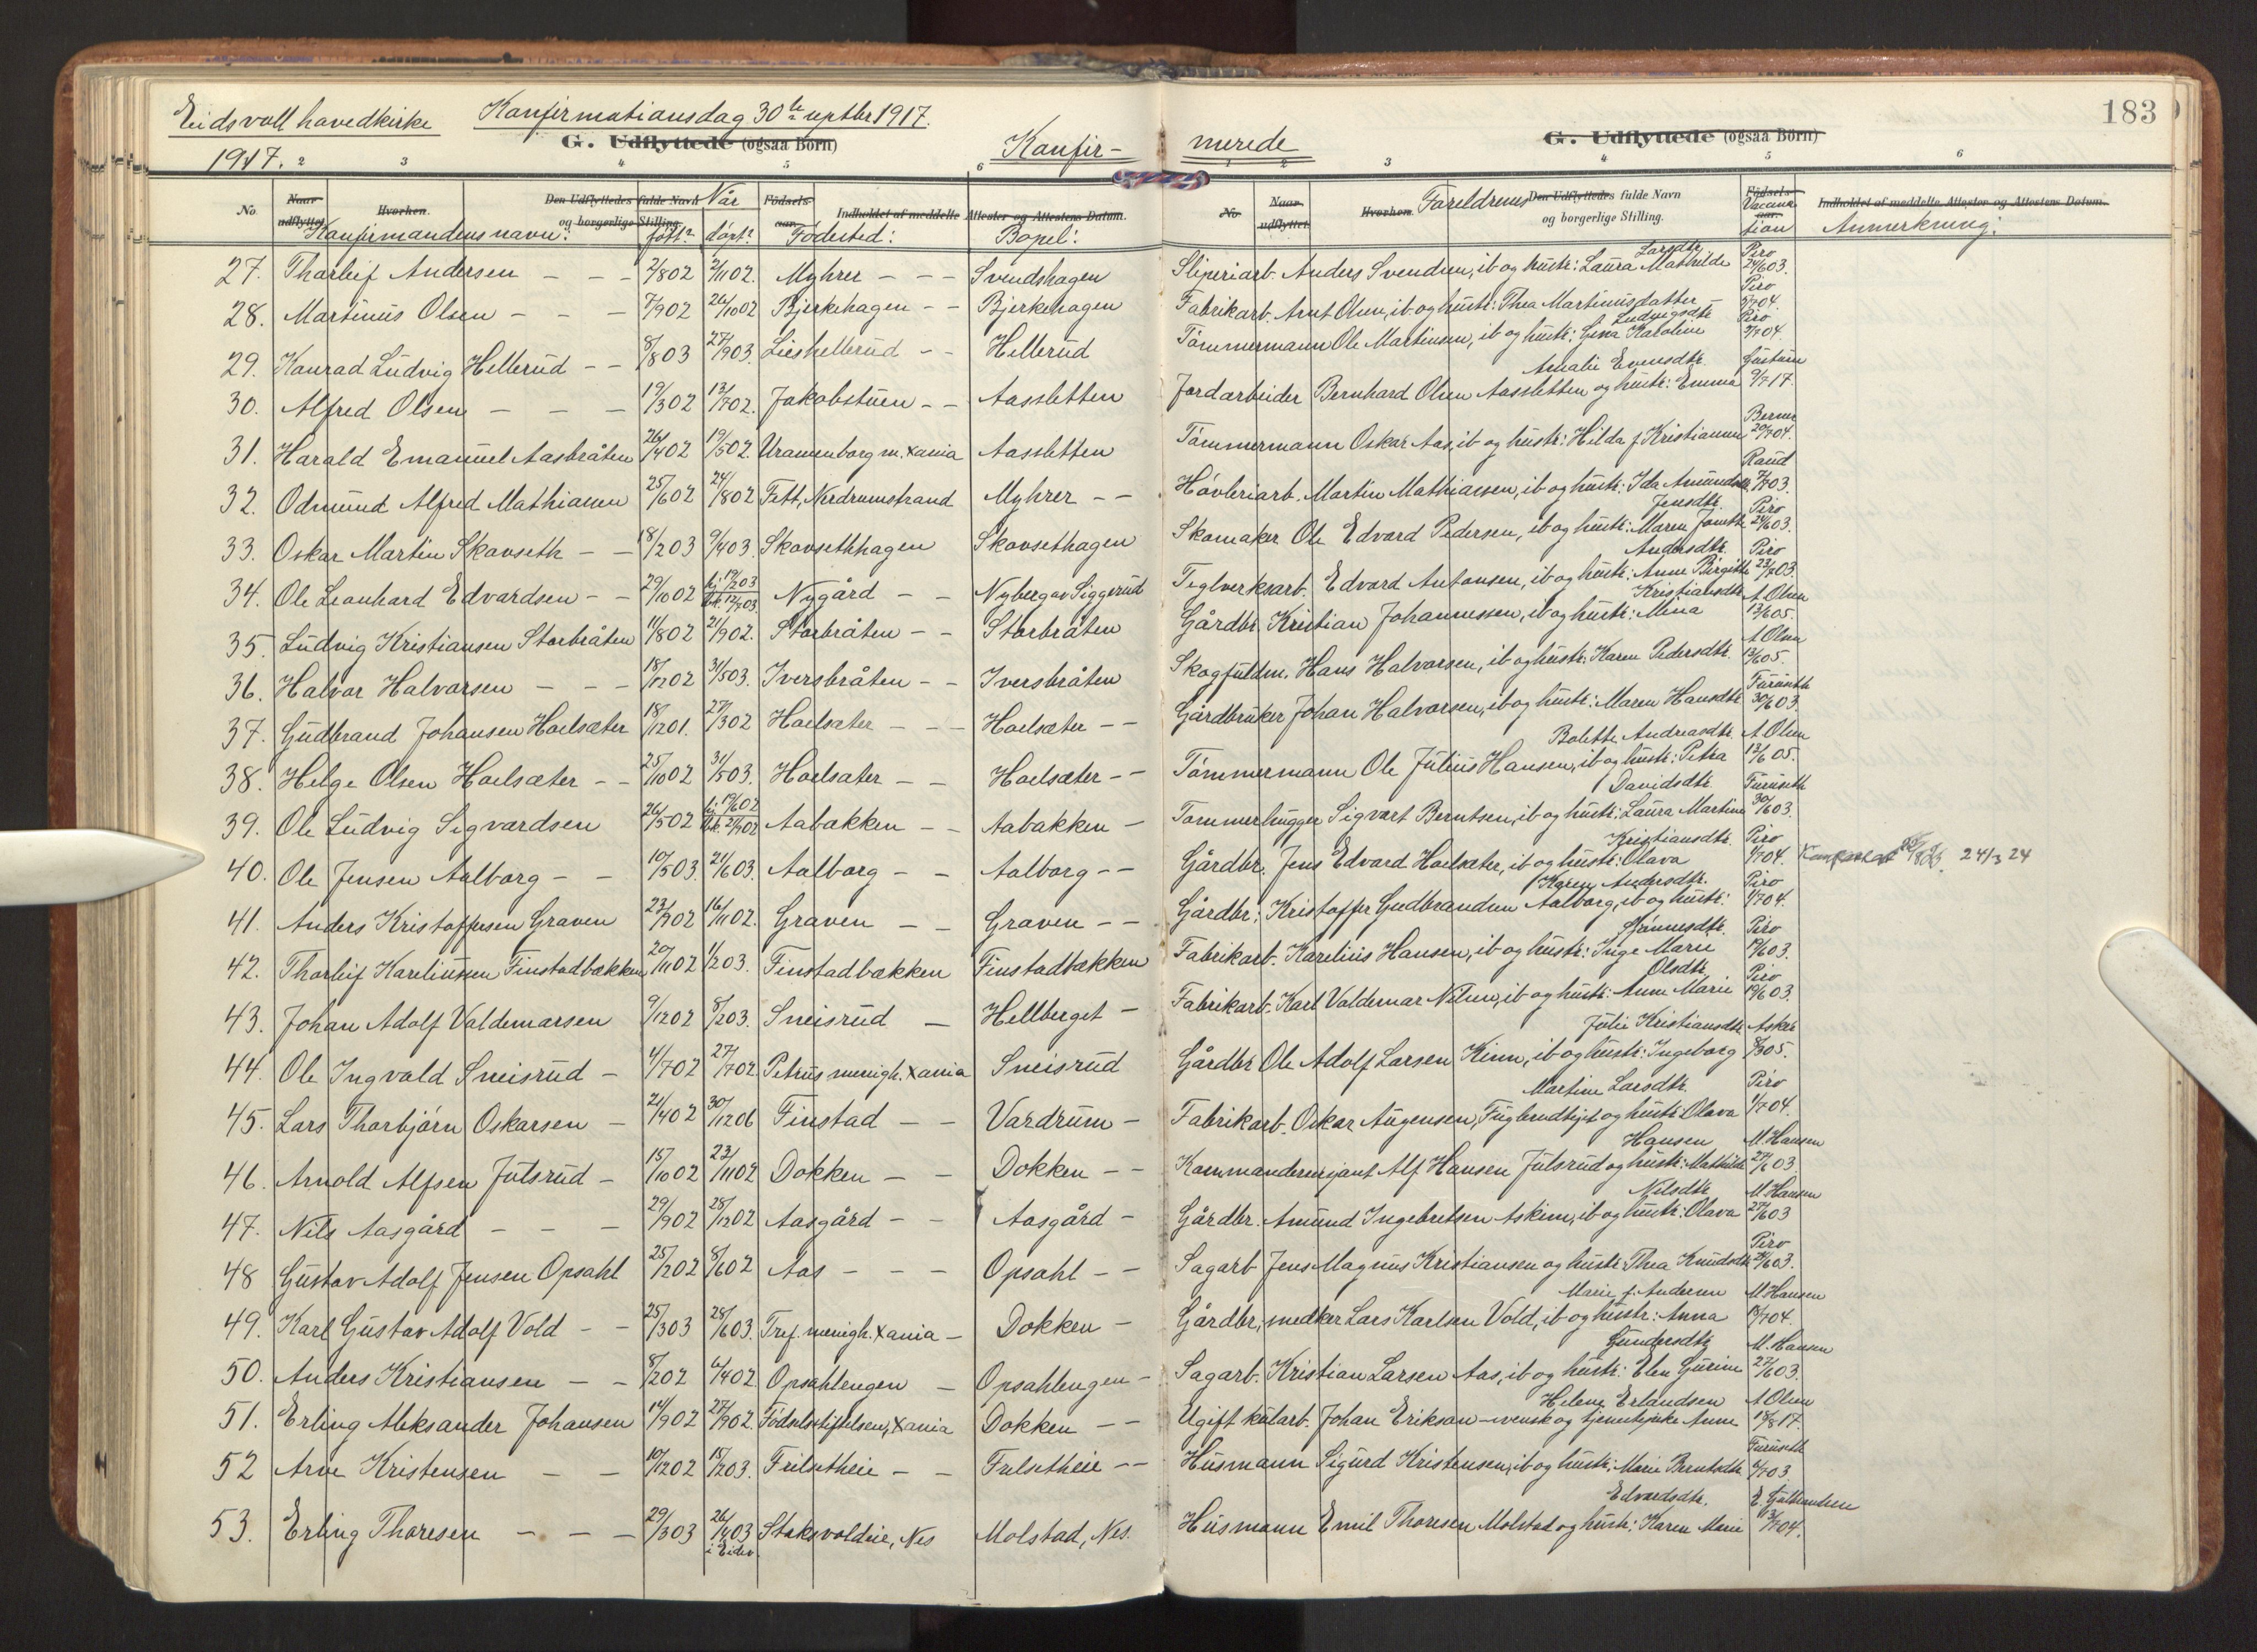 183
Eidsvoll hovedkirke Konfirmationsdag 30te septbr 1917.
G. Udflyttede (ogsaa Börn) G. Udflyttede (ogsaa Börn)
1917. Konfir- merede
2 3 4 5 6 1 2 3 4 5 6
No. Naar udflyttet. Hvorhen. Den Udflyttedes fulde Navn og borgerlige Stilling. Födsels-aar. Indholdet af meddelte Attester og Attestens Datum.
No. Naar udflyttet. Hvorhen. Den Udflyttedes fulde Navn og borgerlige Stilling. Födsels-aar. Indholdet af meddelte Attester og Attestens Datum.
Konfirmandens navn: Når født? døpt? Fødested: Bopel: Foreldrenes Vaccination Anmerkning:
27. Thorleif Andersen - - - 2/802 2/1102. Myhrer - - - Svendshagen Sliperiarb. Anders Svendsen, ib og hustr: Laura Mathilde Larsdtr. Piro 24/603.
28. Martinus Olsen - - - 7/902 26/1002 Bjerkehagen - - Bjerkehagen Fabrikarb. Arnt Olsen, ib og hustr: Thea Martinusdatter - Piro 5/704.
29. Konrad Ludvig Hellerud - - 8/803 27/903. Lieshellerud - - Hellerud Tømmermann Ole Martinsen, ib og hustr: Gina Karoline Ludvigsdtr. Piro 2/704.
30. Alfred Olsen - - - 19/302 13/702. Jakobstuen - - Aassletten Jordarbeider Bernhard Olsen Aassletten og hustr: Emma Amalie Evensdtr. 9/717.
31. Harald Emanuel Aasbråten 26/402 19/502. Uranienborg m. Xania Aassletten Tømmermann Oskar Aas, ib og hustr: Hilda f. Kristiansen Berner 20/704.
32. Odmund Alfred Mathiasen 25/602 24/802 Fett, Nerdrumstrand Myhrer - - Høvleriarb. Martin Mathiassen, ib og hustr: Ida Amundsdtr. Raud 7/703.
33. Oskar Martin Skovseth - - 18/203 9/403. Skovsethhagen Skovsethagen Skomaker Ole Edvard Pedersen, ib og hustr: Maren Jensdtr. Piro 24/603.
34. Ole Leonhard Edvardsen - - 29/1002 hj. 19/203 Bk. 12/703 Nygård - - Nyberg av Siggerud Teglverksarb. Edvard Antonsen, ib og hustr: Anne Birgitte Andersdtr. Piro 23/603.
35. Ludvig Kristiansen Storbråten 11/802 21/902. Storbråten - - Storbråten Gårdbr. Kristian Johannessen, ib og hustr: Mina Kristiansdtr. A. Olsen 13/605.
36. Halvor Halvorsen - - - 18/1202 31/503. Iversbråten - - Iversbråten Skogfuldm. Hans Halvorsen, ib og hustr: Karen Pedersdtr. A Olsen 13/605.
37. Gudbrand Johansen Hoelsæter 18/1201. 27/302 Hoelsæter - - - Hoelsæter - - Gårdbruker Johan Halvorsen, ib og hustr: Maren Hansdtr. Furuseth 30/603.
38. Helge Olsen Hoelsæter - - 25/1002 31/503. Hoelsæter - - Hoelsæter - - Tømmermann Ole Julius Hansen, ib og hustr: Petra Bolette Andreasdtr. A Olsen 13/605.
39. Ole Ludvig Sigvardsen 26/502 hj. 19/602 Bk. 21/902 Aabakken - - Aabakken - Tømmerhugger Sigvart Berntsen, ib og hustr: Laura Martine Davidsdtr. Furuseth 30/603.
40. Ole Jensen Aalborg - - 10/503. 21/603. Aalborg - - Aalborg - - Gårdbr. Jens Edvard Hoelsæter, ib og hustr: Olava Kristiansdtr. Piro 1/704. 24/3 24
41. Anders Kristoffersen Graven 23/902 16/1102. Graven - - Graven - - Gårdbr: Kristoffer Gudbrandsen Aalborg, ib og hustr: Karen Andersdtr. Piro 1/704.
42. Thorleif Kareliussen Finstadbækken 20/1102 1/203. Finstadbækken Finstadbækken Fabrikarb. Karelius Hansen, ib og hustr: Inge Marie Piro 19/603.
43. Johan Adolf Valdemarsen 9/1202 8/203. Sneisrud - Hellberget - Fabrikarb. Karl Valdemar Nilsen, ib og hustr: Anne Marie Olsdtr. Piro 19/603.
44. Ole Ingvald Sneisrud - 4/702 27/702 Petrus menigh. Xania Sneisrud Gårdbr Ole Adolf Larsen Kinn, ib og hustr: Ingeborg Julie Kristiansdtr. 8/305.
45. Lars Thorbjørn Oskarsen - 21/402 30/1206 Finstad - - Vardrum - Fabrikarb. Oskar Augensen, og hustr: Olava Martine Larsdtr. Piro 1/704.
46. Arnold Alfsen Julsrud - 15/1002 23/1102 Dokken - - Dokken - - Kommandersersjant Alf Hansen Julsrud og hustr: Mathilde Hansen M. Hansen 27/603.
47. Nils Aasgård - - - 29/902 28/1202 Aasgård - - Aasgård - Gårdbr. Amund Ingebretsen Askim, ib og hustr: Olava Nilsdtr. M. Hansen 27/603
48 Gustav Adolf Jensen Opsahl 25/202 8/602 Aas - - - Opsahl - - Sagarb Jens Magnus Kristiansen og hustr: Thea Knudsdtr. Piro 24/603.
49. Karl Gustav Adolf Vold - - 25/303 28/603. Tref. menigh. Xania - Dokken - Gårdbr, snedker Lars Karlsen Vold, ib og hustr: Anna Marie f. Andersen M Hansen 13/704.
50. Anders Kristiansen - - 8/202 6/402 Opsahlengen - Opsahlengen - Sagarb. Kristian Larsen Aas, ib og hustr: Elen Gurine Gundersdtr. M. Hansen 27/603.
51. Erling Aleksander Johansen 14/902 27/902. Fødselsstiftelsen, Xania Dokken - - Ugift kularb. Johan Erikson - svensk og tjenestepike Anne Helene Erlandsen A Olsen 18/817.
52 Arve Kristensen - - 10/1202 15/203. Fulsetheie - - Fulsetheie - - Husmann Sigurd Kristensen, ib og hustr: Marie Berntsdtr. Furuseth 4/703.
53. Erling Thoresen - - - 29/303 26/1103 i Eidsv. Stoksvoldeie, Nes Molstad, Nes. Husmann Emil Thoresen Molstad og hustr: Karen Marie Edvardsdtr. E. Gulbrandsen 13/704.